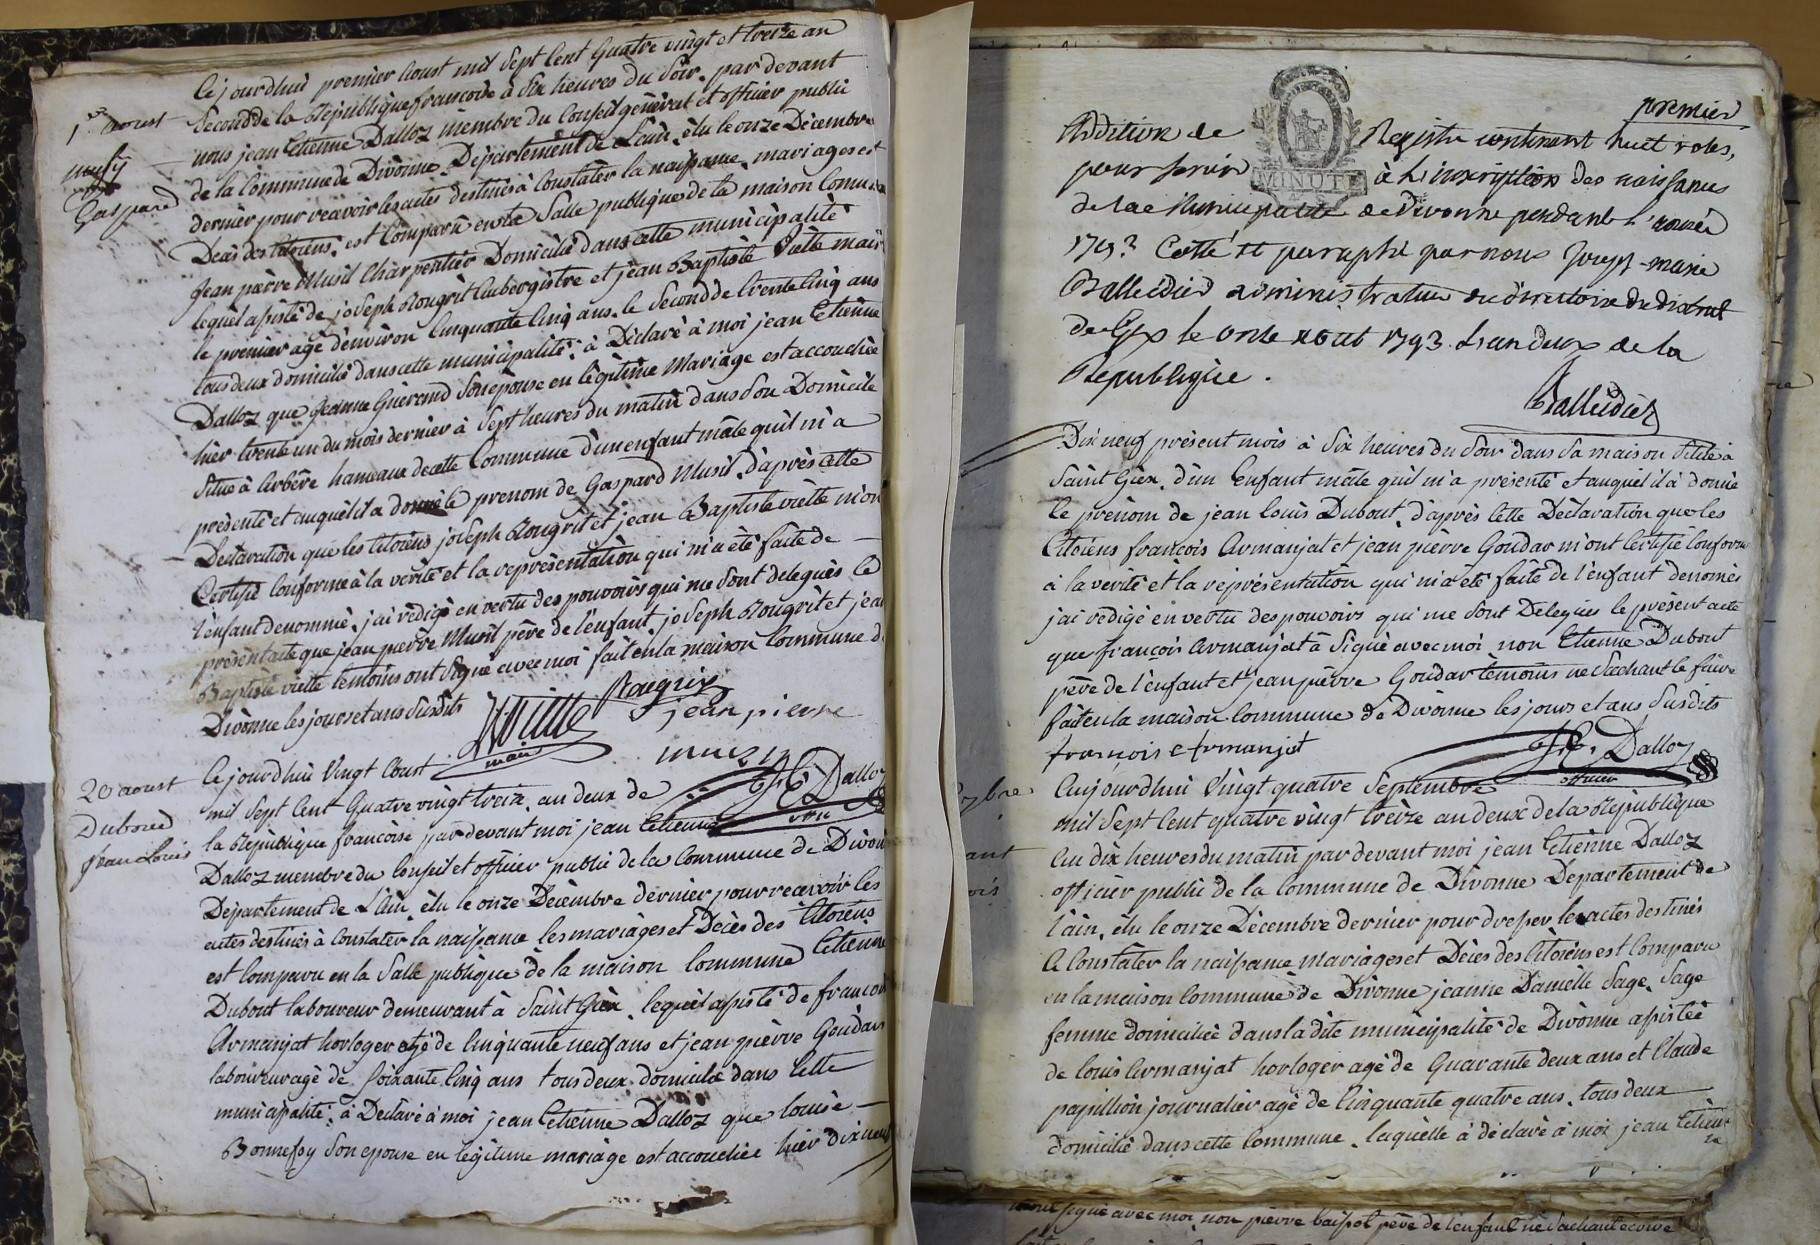 Cejourdhui premier aoust mil Sept Cent Quatre vingt et treize an
Second de la République francoise à Six heures du Soir, par devant
nous jean Etienne Dalloz membre du Conseil général et officier public
de la Commune de Divonne Département de L'ain, élu le onze Décembre
dernier pour recevoir les actes destinés à Constater la naissance, mariages et
Décès des Citoiens, est Comparu en la Salle publique de la maison Comune
jean pierre Musil Charpentier Domicilié dans cette municipalité
lequel assisté de joseph Rougrit Aubergistre et jean Baptiste Viette mair
le premier agé d'environ Cinquante Cinq ans, le Second de trente Cinq ans
tous deux domicilié dans cette municipalité, à Déclaré à moi jean Etienne
Dalloz que jeanne Guerand Son epouse en légitime Mariage est accouchée
hier trente un du mois dernier à Sept heures du matin dans Son Domicile
Situé à Arbère hameaux de cette Commune d'un enfant mâle quil m'a
présenté et auquel il a donné le prenom de Gaspard Musil, d'après cette
Déclaration que les Citoiens joseph Rougrit et jean Baptiste viette m'on
Certifié Conforme à la verité et la représentation qui m'a été faite de
l'enfant denommé, j'ai rédigé en vertu des pouvoirs qui me Sont delegués le
présent acte que jean pierre Musil père de l'enfant, joseph Rougrit et jean
Baptiste viette temoins ont Signé avec moi fait en la maison Commune de
Divonne les jours et ans Susdits
1er aoust
musy
Gaspard
Viette
maire
Rougrix
jean pierre
musy
JE Dalloz
off
20 aoust
Duboud
jean Louis
Cejourdhui Vingt aoust
mil Sept Cent Quatre vingt treize, an deux de
la République francoise par devant moi jean Etienne
Dalloz membre du Conseil et officier public de la Commune de Divonne
Département de L'ain, élu le onze Décembre dernier pour recevoir les
actes destinés à Constater la naissance les mariages et Décès des Citoiens
est Comparu en la Salle publique de la maison Commune Etienne
Dubout laboureur demeurant à Saint Gièx, lequel assisté de francois
Armanjat horloger agé de Cinquante neuf ans et jean pierre Goudar
laboureur agé de Soixante Cinq ans tous deux domicilié dans Cette
municipalité, à Déclaré à moi jean Etienne Dalloz que louise
Bonnefoy Son epouse en légitime mariage est accouchée hier dix neuf
premier
Addition de Registre contenant huit roles,
MINUTE
pour servir à L'inscription des naissances
de la Municipalité de Divonne pendant l'année
1793 Cotté et paraphé par nous Joseph-marie
Balleidier administrateur du directoire du district
de Gex le onze aout 1793 L'an deux de la
République.
Balleidier
Dix neuf présent mois à Six heures du Soir dans Sa maison Située à
Saint Gièx, d'un Enfant mâle quil m'a présenté et auquel il à donné
le prénom de jean louis Dubout, d'après Cette Déclaration que les
Citoiens francois Armanjat et jean pierre Goudar m'ont Certifié Conforme
à la verité et la réprésentation qui m'a été faite de l'enfant denomés
j'ai rédigé en vertu des pouvoirs qui me Sont Delegués le présent acte
que françois Armanjat à Signé avec moi, non Etienne Dubout
père de l'enfant et jean pierre Goudar temoins ne Sachant le faire
fait en la maison Commune de Divonne les jours et ans Susdits
francois Armanjat
J.E. Dalloz
officier
Aujourdhui Vingt quatre Septembre
mil Sept Cent quatre vingt treize an deux de la République
au dix heures du matin par devant moi jean Etienne Dalloz
officier public de la Commune de Divonne Département de
l'ain, élu le onze Décembre dernier pour dresser les actes destinés
à Constater la naissance mariages et Décès des Citoiens est Comparu
en la maison Commune de Divonne jeanne Danielle Sage, Sage
femme domiciliée dans la dite municipalité de Divonne assistée
de louis Armanjat horloger agé de Quarante deux ans et Claude
papillion journalier agé de Cinquante quatre ans, tous deux
domicilié dans cette Commune, laquelle à déclaré à moi jean Etienne
avec moi, non pierre père de l'enfant ne Sachant écrire